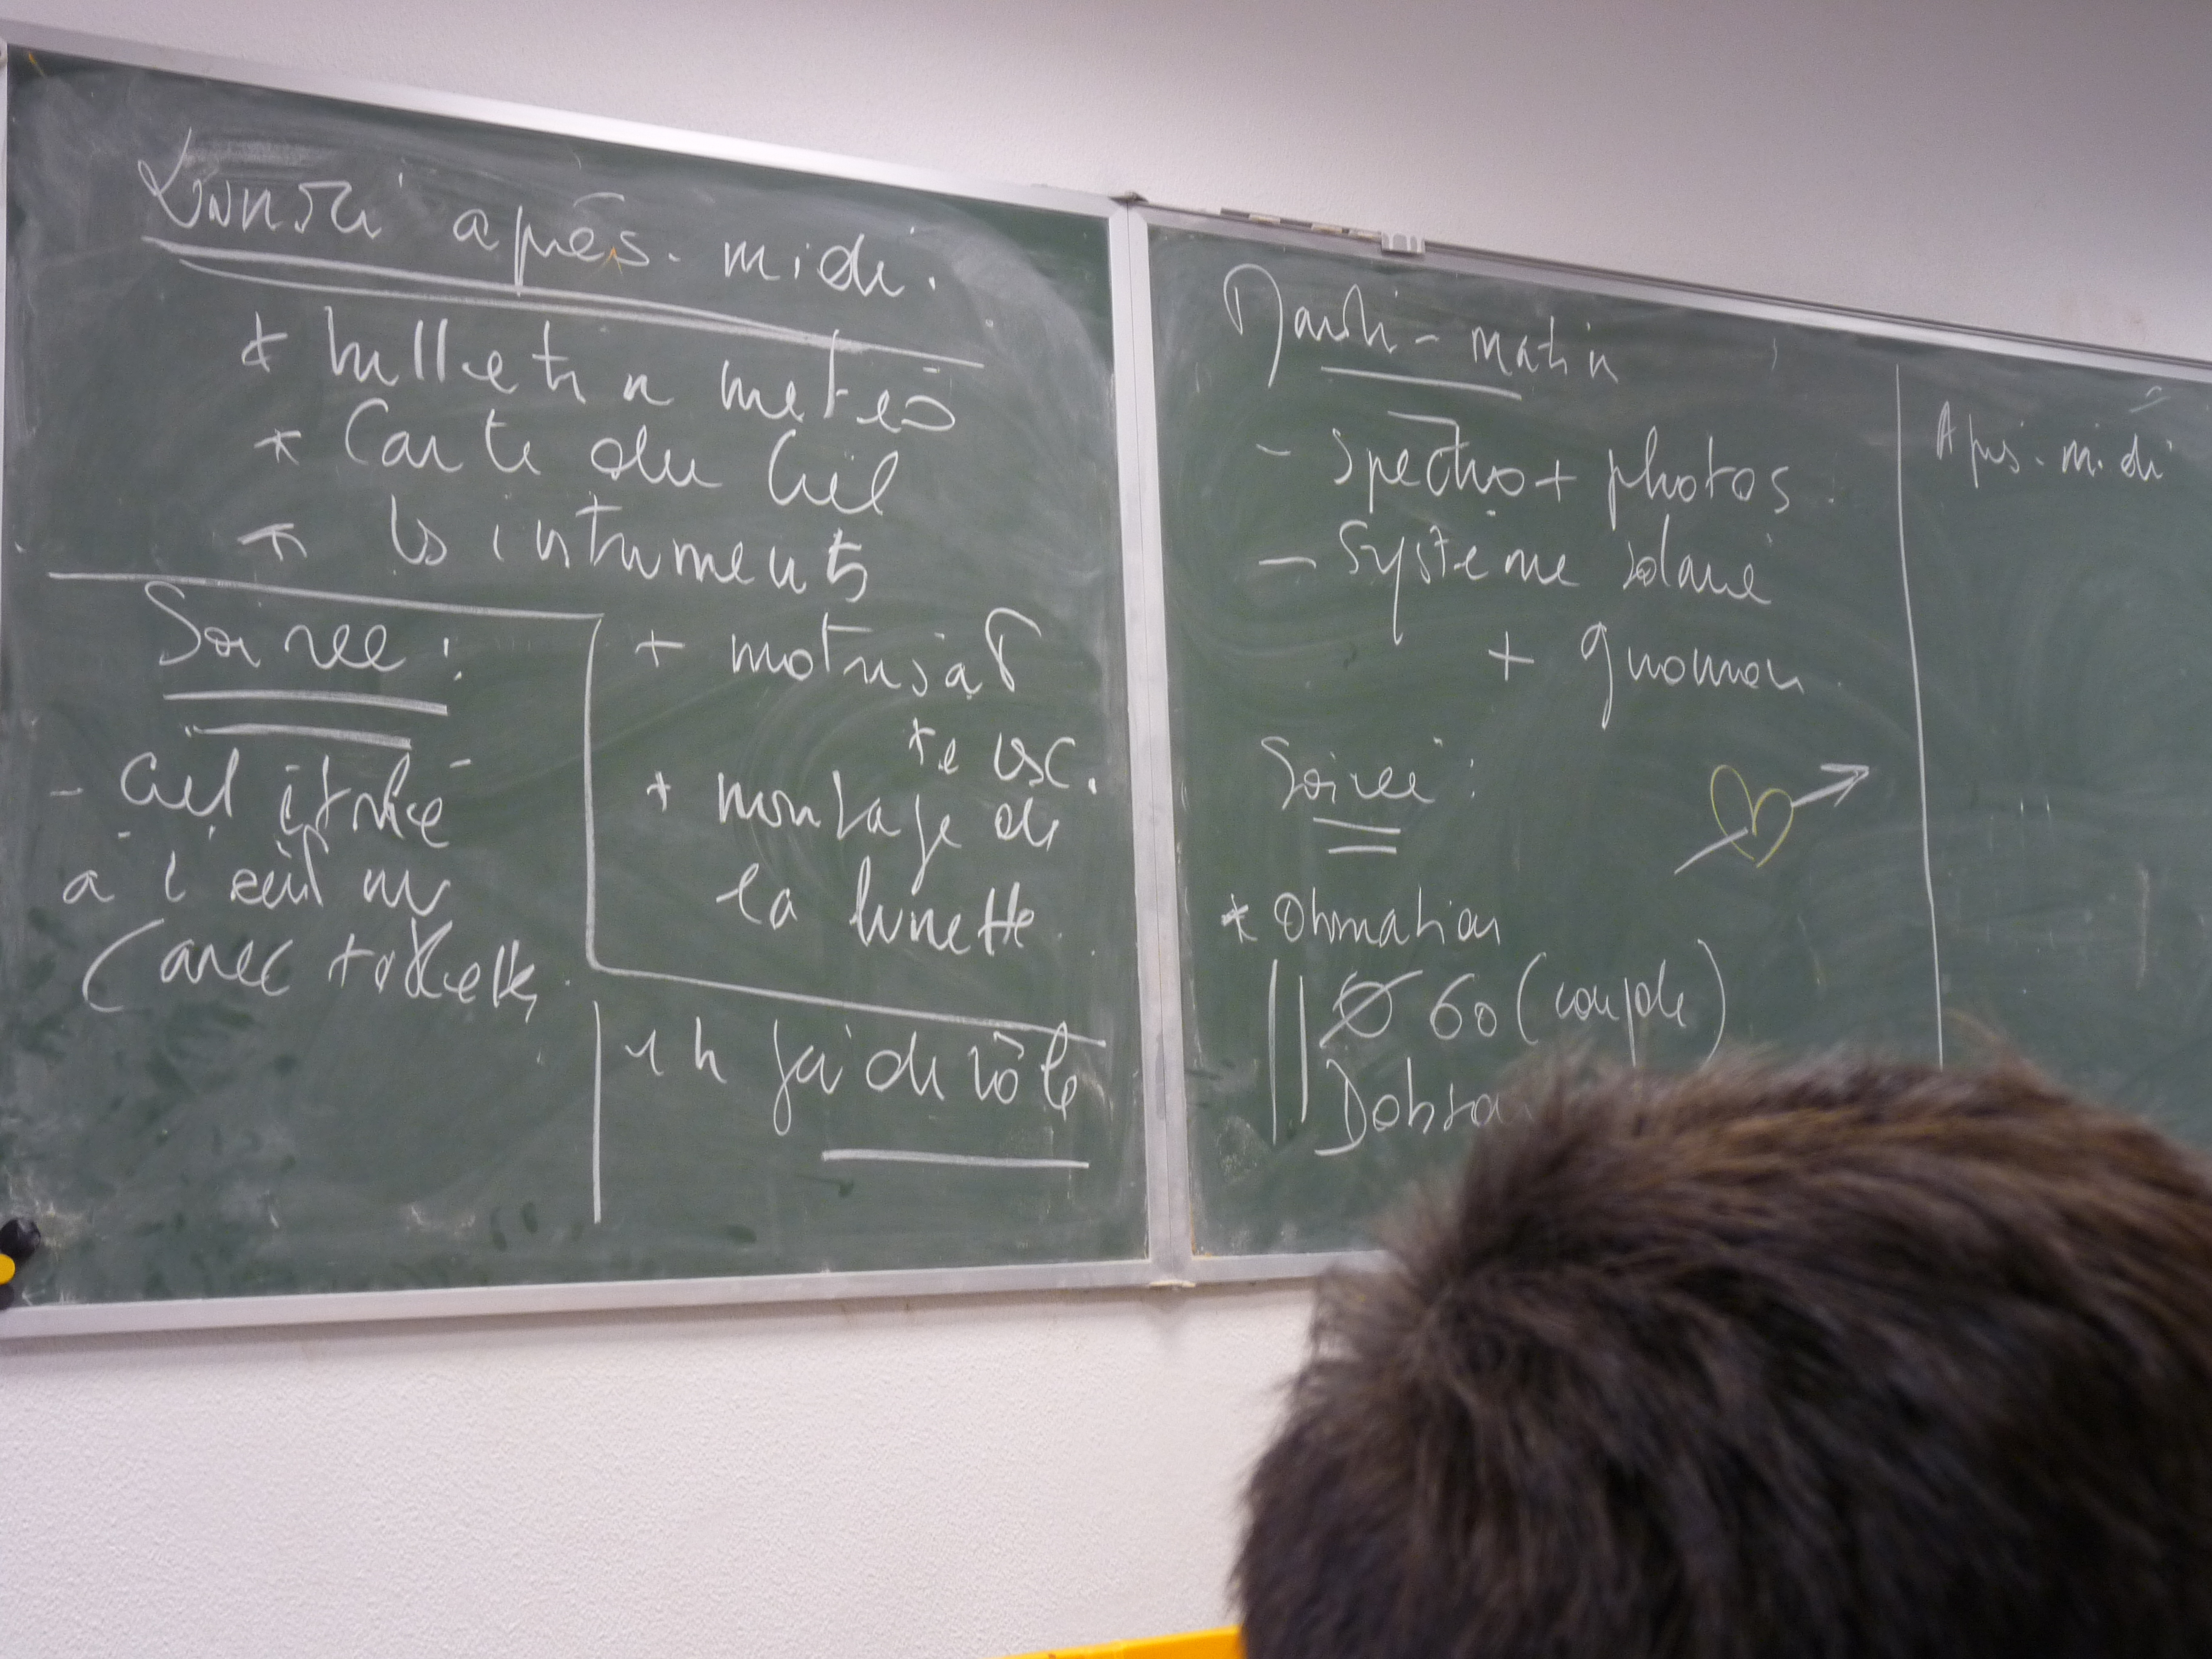 Lundi après-midi.
* bulletin météo
* Carte du Ciel
* les intruments
Soirée :
- Ciel étoilé
à l'œil nu
(avec
+ motorisat°
+ montage de
la lunette.
1 h
Mardi - matin
- Spectro + photos.
- Système solaire
+ gnomon.
Soirée :
* Observation
|| Ø 60 (coupole)
Dobso
Après-midi